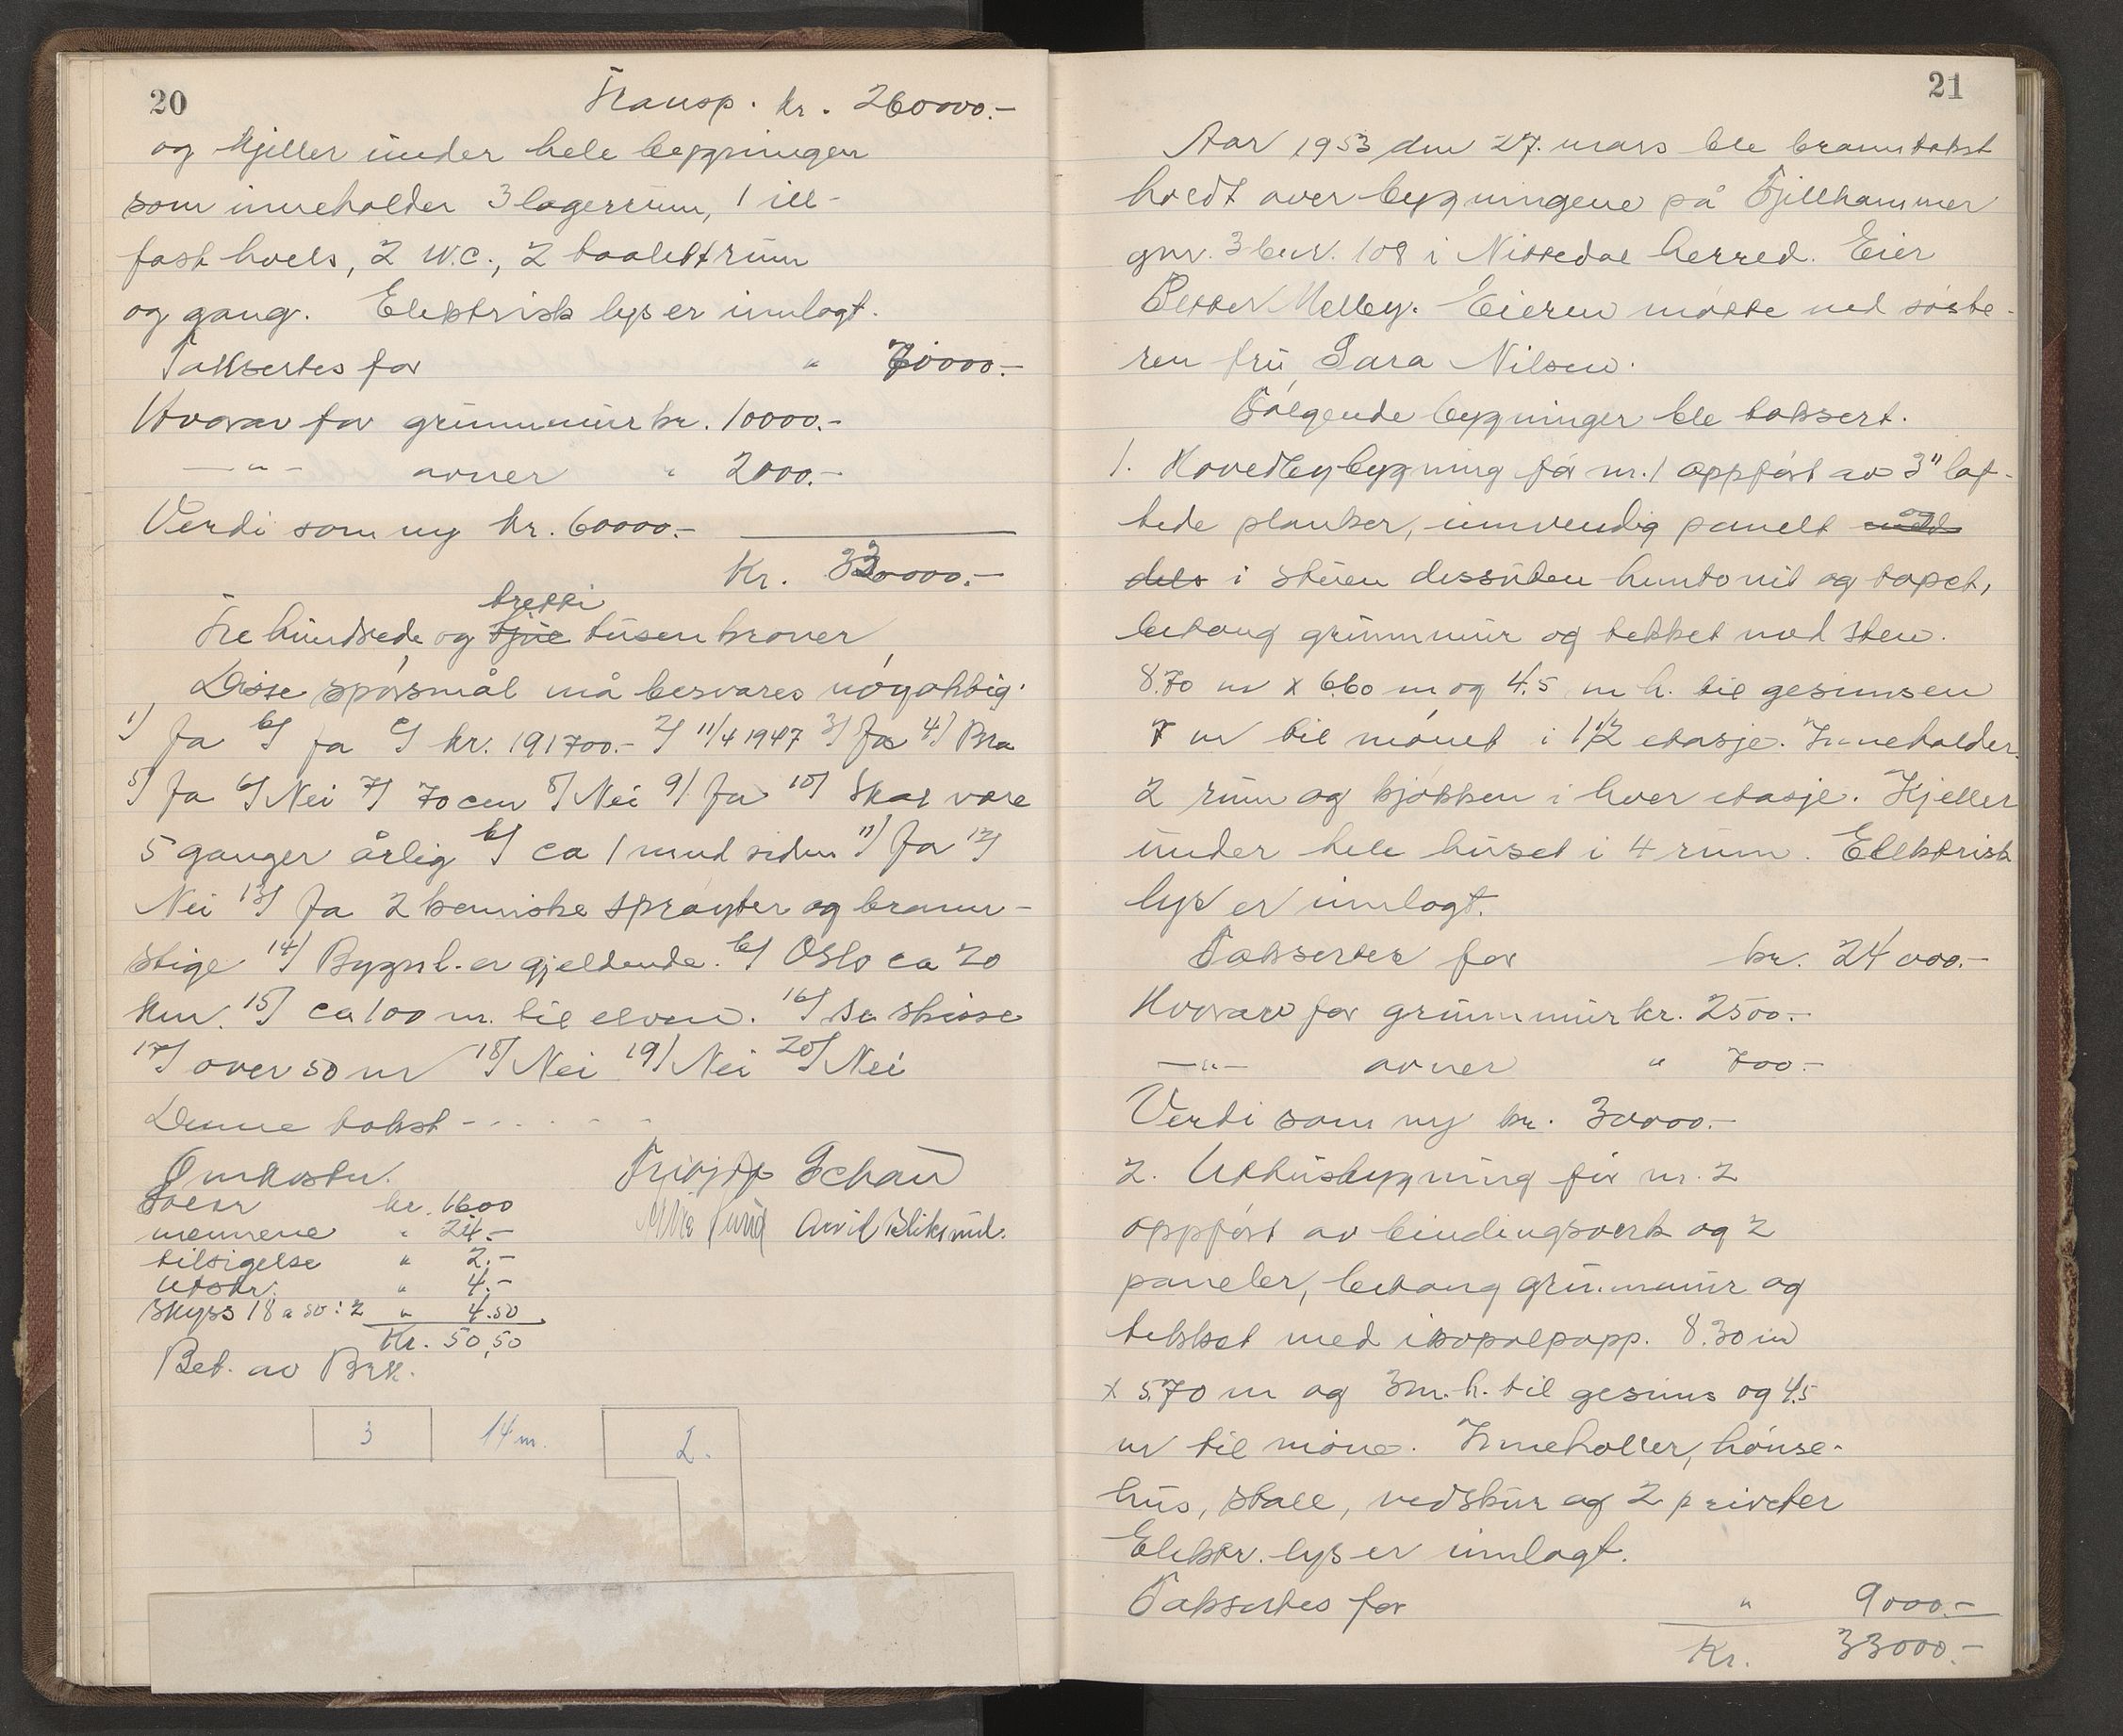 20
Transp. kr. 260000.-
og kjeller under hele bygningen
som inneholder 3 lagerrum, 1 ill-
fast hvelv, 2 W.C., 2 toalettrum
og gang. Elektrisk lys er innlagt.
Taksertes for " 70000.-
Hvorav for grunnmur kr. 10000.-
—"— ovner " 2000.-
Verdi som ny kr. 60000.-
Kr. 330000.-
tretti
Tre hundrede og tjue tusen kroner
Disse spörsmål må besvares nöyaktig.
1) Ja b) ja c) kr. 191700.- 2) 11/4 1947 3) Ja 4) Bra
5) Ja 6) Nei 7) 70 cm 8) Nei 9) Ja 10) Skal være
5 ganger årlig b) ca 1 mnd siden 11) Ja 12)
Nei 13) Ja 2 kemiske spröyter og brann-
stige 14) Bygnl. er gjeldende. b) Oslo ca 20
km. 15) ca 100 m. til elven. 16) se skisse
17) over 50 m 18) Nei 19) Nei 20) Nei
Denne takst - . . . . .
Omkostn. Schau
kr. 16.00
mennene " 24.-
Arvid
tilsigelse " 2.-
Utskr. " 4.-
Skyss 18 a 50:2 " 4.50
Kr. 50,50
Bet. av Brk.
3 14 m. 2.
21
Aar 1953 den 27. mars ble branntakst
holdt over bygningene på Fjellhammer
gnr. 3 bnr. 108 i Nittedal herred. Eier
Petter Melby. Eieren mötte ved söste-
ren fru Sara Nilsen.
Fölgende bygninger ble taksert.
1. Hovedbybygning för nr. 1 oppfört av 3" laf-
tede planker, innvendig panelt og
dels i stuen dessuten huntonit og tapet,
betong grunnmur og tekket med sten.
8.70 m x 6.60 m og 4.5 m h. til gesimsen
7 m til mönet i 1 1/2 etasje. Inneholder
2 rum og kjökken i hver etasje. Kjeller
under hele huset i 4 rum. Elektrisk
lys er innlagt.
Taksertes for kr. 24000.-
Hvorav for grunnmur kr. 2500.-
—"— ovner " 700.-
Verdi som ny kr. 30000.-
2. Uthusbygning för nr. 2
oppfört av bindingsverk og 2
paneler, betong grunnmur og
tekket med isopolpapp. 8.30 m
x 5.70 m og 3 m. h. til gesims og 4.5
m til möne. Inneholder, hönse-
hus, stall, vedskur og 2 priveter
Elektr. lys er innlagt.
Taksertes for " 9000.-
Kr. 33000.-